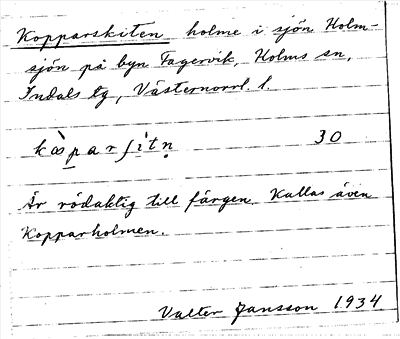 Kopparskiten holme i sjön Holm-
sjön på byn Fagervik, Holms sn,
Indals tg, Västernorrl. l.
30
Är rödaktig till färgen. Kallas även
Kopparholmen.
Valter Jansson 1934